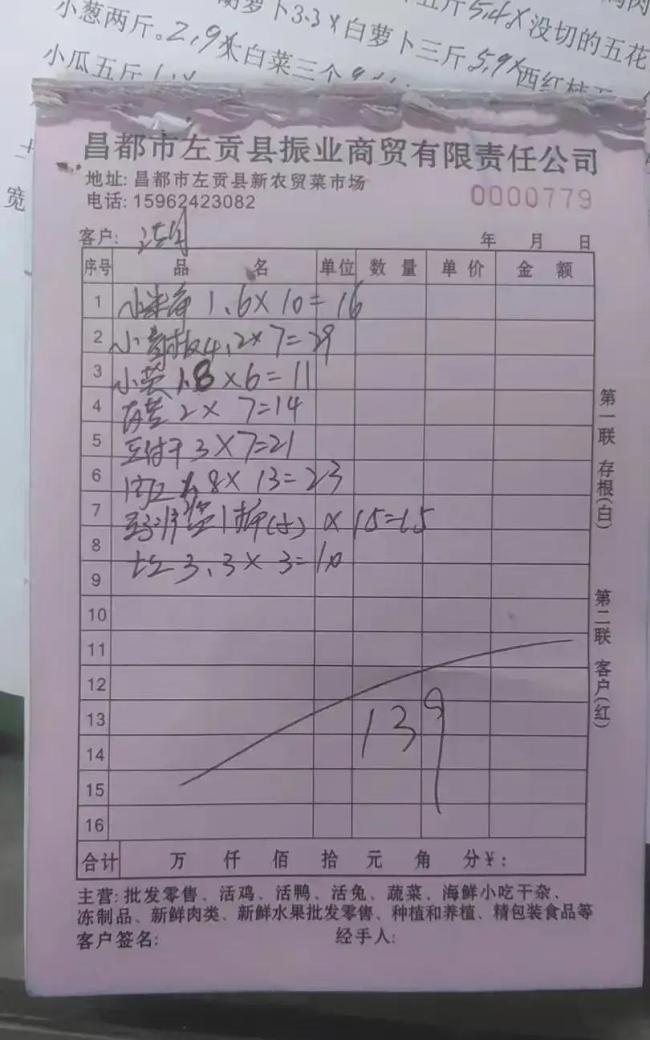 小葱两斤。2.9× 白萝卜三斤5.9× 没切的五花
小瓜五斤 大白菜三个 西红柿
宽
昌都市左贡县振业商贸有限责任公司
地址: 昌都市左贡县新农贸菜市场
电话: 15962423082
0000779
客户:
年 月 日
序号 品 名 单位 数 量 单 价 金 额
1 小米角 1.6×10=16
2 4.2×7=29
3 小葱 1.8×6=11
4 2×7=14
5 豆付干 3×7=21
6 8×13=23
7 1瓶(大)×15=15
8 土豆 3.3×3=10
9
10
11
12
13 139
14
15
16
合计 万 仟 佰 拾 元 角 分¥:
第一联 存根(白)
第二联 客户(红)
主营: 批发零售、活鸡、活鸭、活兔、蔬菜、海鲜小吃干杂、
冻制品、新鲜肉类、新鲜水果批发零售、种植和养植、精包装食品等
客户签名: 经手人: